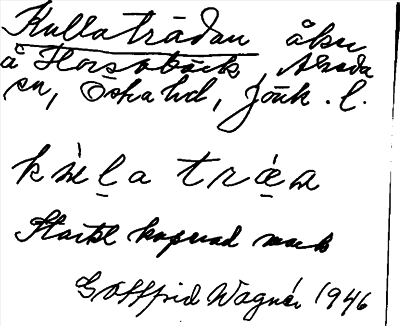 Kullaträdan åker
å Horsabäck, Alseda
sn, Östra hd, Jönk. l.
kùla træ̀n
Starkt kuperad mark
Gottfrid Wagnér 1946